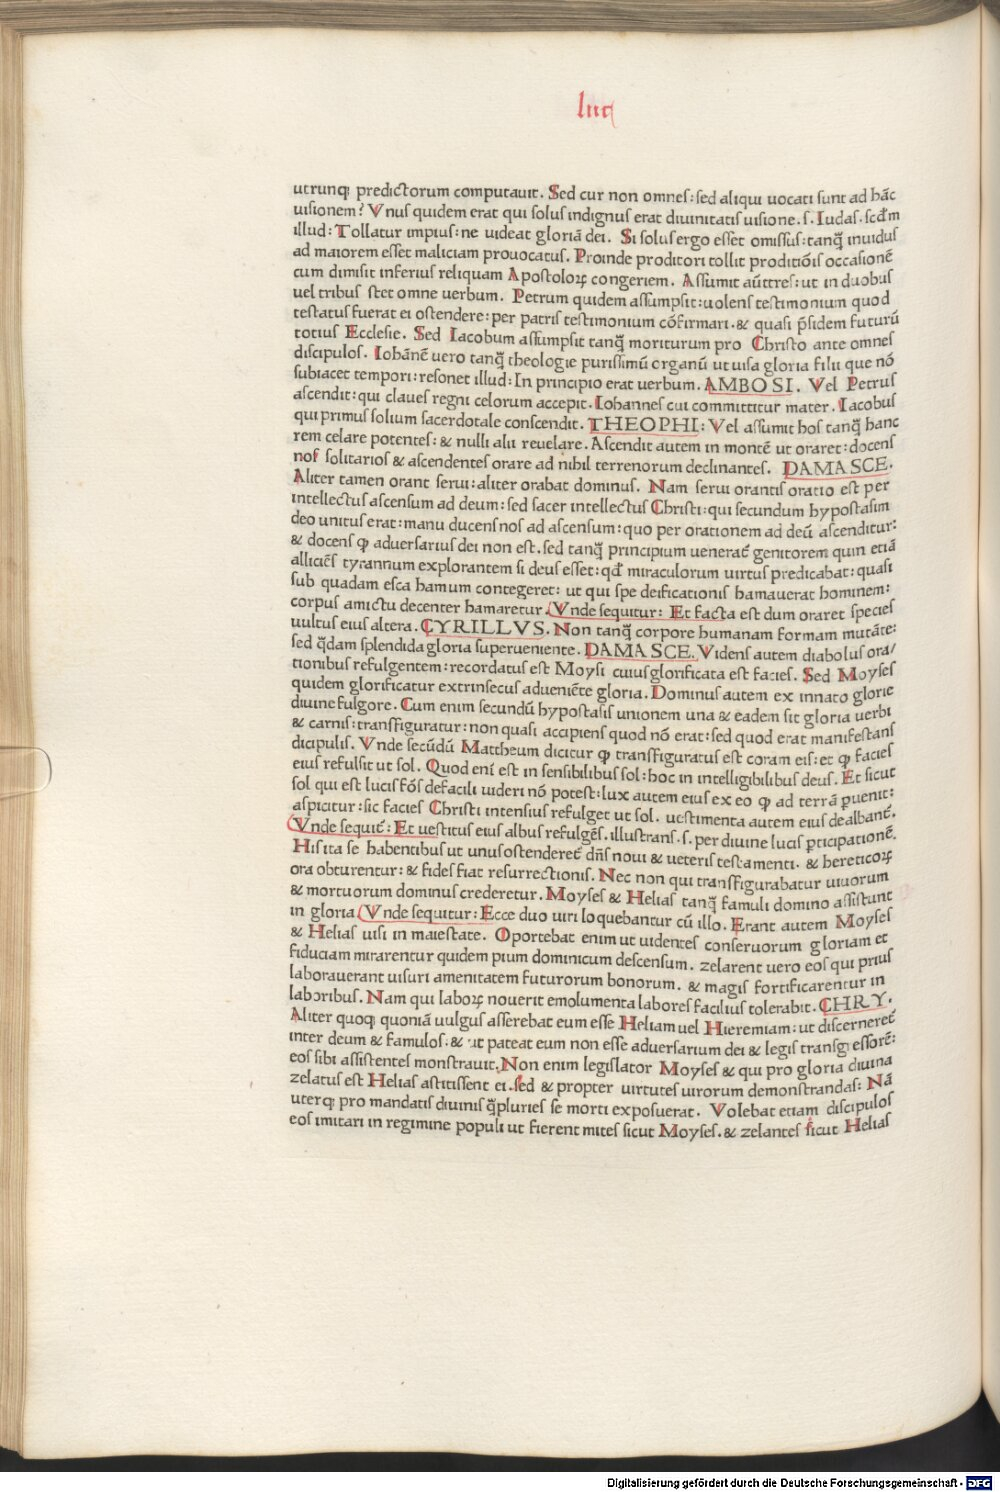 luc
utrunq; predictorum computauit. Sed cur non omneſ: ſed aliqui uocati ſunt ad hāc
uiſionem? Vnuſ quidem erat qui ſoluſ indignuſ erat diuinitatiſ uiſione. ſ. Iudaſ. ſcd̄m
illud: Tollatur impiuſ: ne uideat gloriā dei. Si ſoluſ ergo eſſet omiſſuſ: tanq̄ inuiduſ
ad maiorem eſſet maliciam prouocatuſ. Proinde proditori tollit proditiōiſ occaſionē
cum dimiſit inferiuſ reliquam Apoſtoloꝝ congeriem. Aſſumit aūt treſ: ut in duobuſ
uel tribuſ ſtet omne uerbum. Petrum quidem aſſumpſit: uolenſ teſtimonium quod
teſtatuſ fuerat ei oſtendere: per patriſ teſtimonium cōfirmari. & quaſi p̄ſidem futurū
totiuſ Eccleſie. Sed Iacobum aſſumpſit tanq̄ moriturum pro Chriſto ante omneſ
diſcipuloſ. Iohānē uero tanq̄ theologie puriſſimū organū ut uiſa gloria filii que nō
ſubiacet tempori: reſonet illud: In principio erat uerbum. AMBOSI. Vel Petruſ
aſcendit: qui claueſ regni celorum accepit. Iohanneſ cui committitur mater. Iacobuſ
qui primuſ ſolium ſacerdotale conſcendit. THEOPHI: Vel aſſumit hoſ tanq̄ hanc
rem celare potenteſ: & nulli alii reuelare. Aſcendit autem in montē ut oraret: docenſ
noſ ſolitarioſ & aſcendenteſ orare ad nihil terrenorum declinanteſ. DAMASCE.
Aliter tamen orant ſerui: aliter orabat dominuſ. Nam ſerui orantiſ oratio eſt per
intellectuſ aſcenſum ad deum: ſed ſacer intellectuſ Chriſti: qui ſecundum hypoſtaſim
deo unituſ erat: manu ducenſ noſ ad aſcenſum: quo per orationem ad deū aſcenditur:
& docenſ ꝙ aduerſariuſ dei non eſt. ſed tanq̄ principium uenerat̄ genitorem quin etiā
alliciēſ tyrannum explorantem ſi deuſ eſſet: qd̄ miraculorum uirtuſ predicabat: quaſi
ſub quadam eſca hamum contegeret: ut qui ſpe deificationiſ hamauerat hominem:
corpuſ amictu decenter hamaretur. Vnde ſequitur: Et facta eſt dum oraret ſpecieſ
uultuſ eiuſ altera. CYRILLVS. Non tanq̄ corpore humanam formam mutāte:
ſed q̄dam ſplendida gloria ſuperueniente. DAMASCE. Videnſ autem diaboluſ ora/
tionibuſ refulgentem: recordatuſ eſt Moyſi cuiuſ glorificata eſt facieſ. Sed Moyſeſ
quidem glorificatur extrinſecuſ adueniēte gloria. Dominuſ autem ex innato glorie
diuine fulgore. Cum enim ſecundū hypoſtaſiſ unionem una & eadem ſit gloria uerbi
& carniſ: tranſfiguratur: non quaſi accipienſ quod nō erat: ſed quod erat manifeſtanſ
dicipuliſ. Vnde ſecūdū Mattheum dicitur ꝙ tranſfiguratuſ eſt coram eiſ: et ꝙ facieſ
eiuſ refulſit ut ſol. Quod enī eſt in ſenſibilibuſ ſol: hoc in intelligibilibuſ deuſ. Et ſicut
ſol qui eſt luciſ fōſ de facili uideri nō poteſt: lux autem eiuſ ex eo ꝙ ad terrā ꝑuenit:
aſpicitur: ſic facieſ Chriſti intenſiuſ refulget ut ſol. ueſtimenta autem eiuſ dealbant̄.
Vnde ſequit̄: Et ueſtituſ eiuſ albuſ refulgēſ. illuſtranſ. ſ. per diuine luciſ ꝑticipationē.
Hiſ ita ſe habentibuſ ut unuſ oſtenderet̄ dn̄ſ noui & ueteriſ teſtamenti. & hereticoꝝ
ora obturentur: & fideſ fiat reſurrectioniſ. Nec non qui tranſfigurabatur uiuorum
& mortuorum dominuſ crederetur. Moyſeſ & Heliaſ tanq̄ famuli domino aſſiſtunt
in gloria. Vnde ſequitur: Ecce duo uiri loquebantur cū illo. Erant autem Moyſeſ
& Heliaſ uiſi in maieſtate. Oportebat enim ut uidenteſ conſeruorum gloriam et
fiduciam mirarentur quidem pium dominicum deſcenſum. zelarent uero eoſ qui priuſ
laborauerant uiſuri amenitatem futurorum bonorum. & magiſ fortificarentur in
laboribuſ. Nam qui laboꝝ nouerit emolumenta laboreſ faciliuſ tolerabit. CHRY.
Aliter quoq; quoniā uulguſ aſſerebat eum eſſe Heliam uel Hieremiam: ut diſcerneret̄
inter deum & famuloſ. & ut pateat eum non eſſe aduerſarium dei & legiſ tranſgreſſorē:
eoſ ſibi aſſiſtenteſ monſtrauit. Non enim legiſlator Moyſeſ & qui pro gloria diuina
zelatuſ eſt Heliaſ aſtitiſſent ei. ſed & propter uirtuteſ uirorum demonſtrandaſ: Nā
uterq; pro mandatiſ diuiniſ q̄plurieſ ſe morti expoſuerat. Volebat etiam diſcipuloſ
eoſ imitari in regimine populi ut fierent miteſ ſicut Moyſeſ. & zelanteſ ſicut Heliaſ
Digitalisierung gefördert durch die Deutsche Forschungsgemeinschaft - DFG